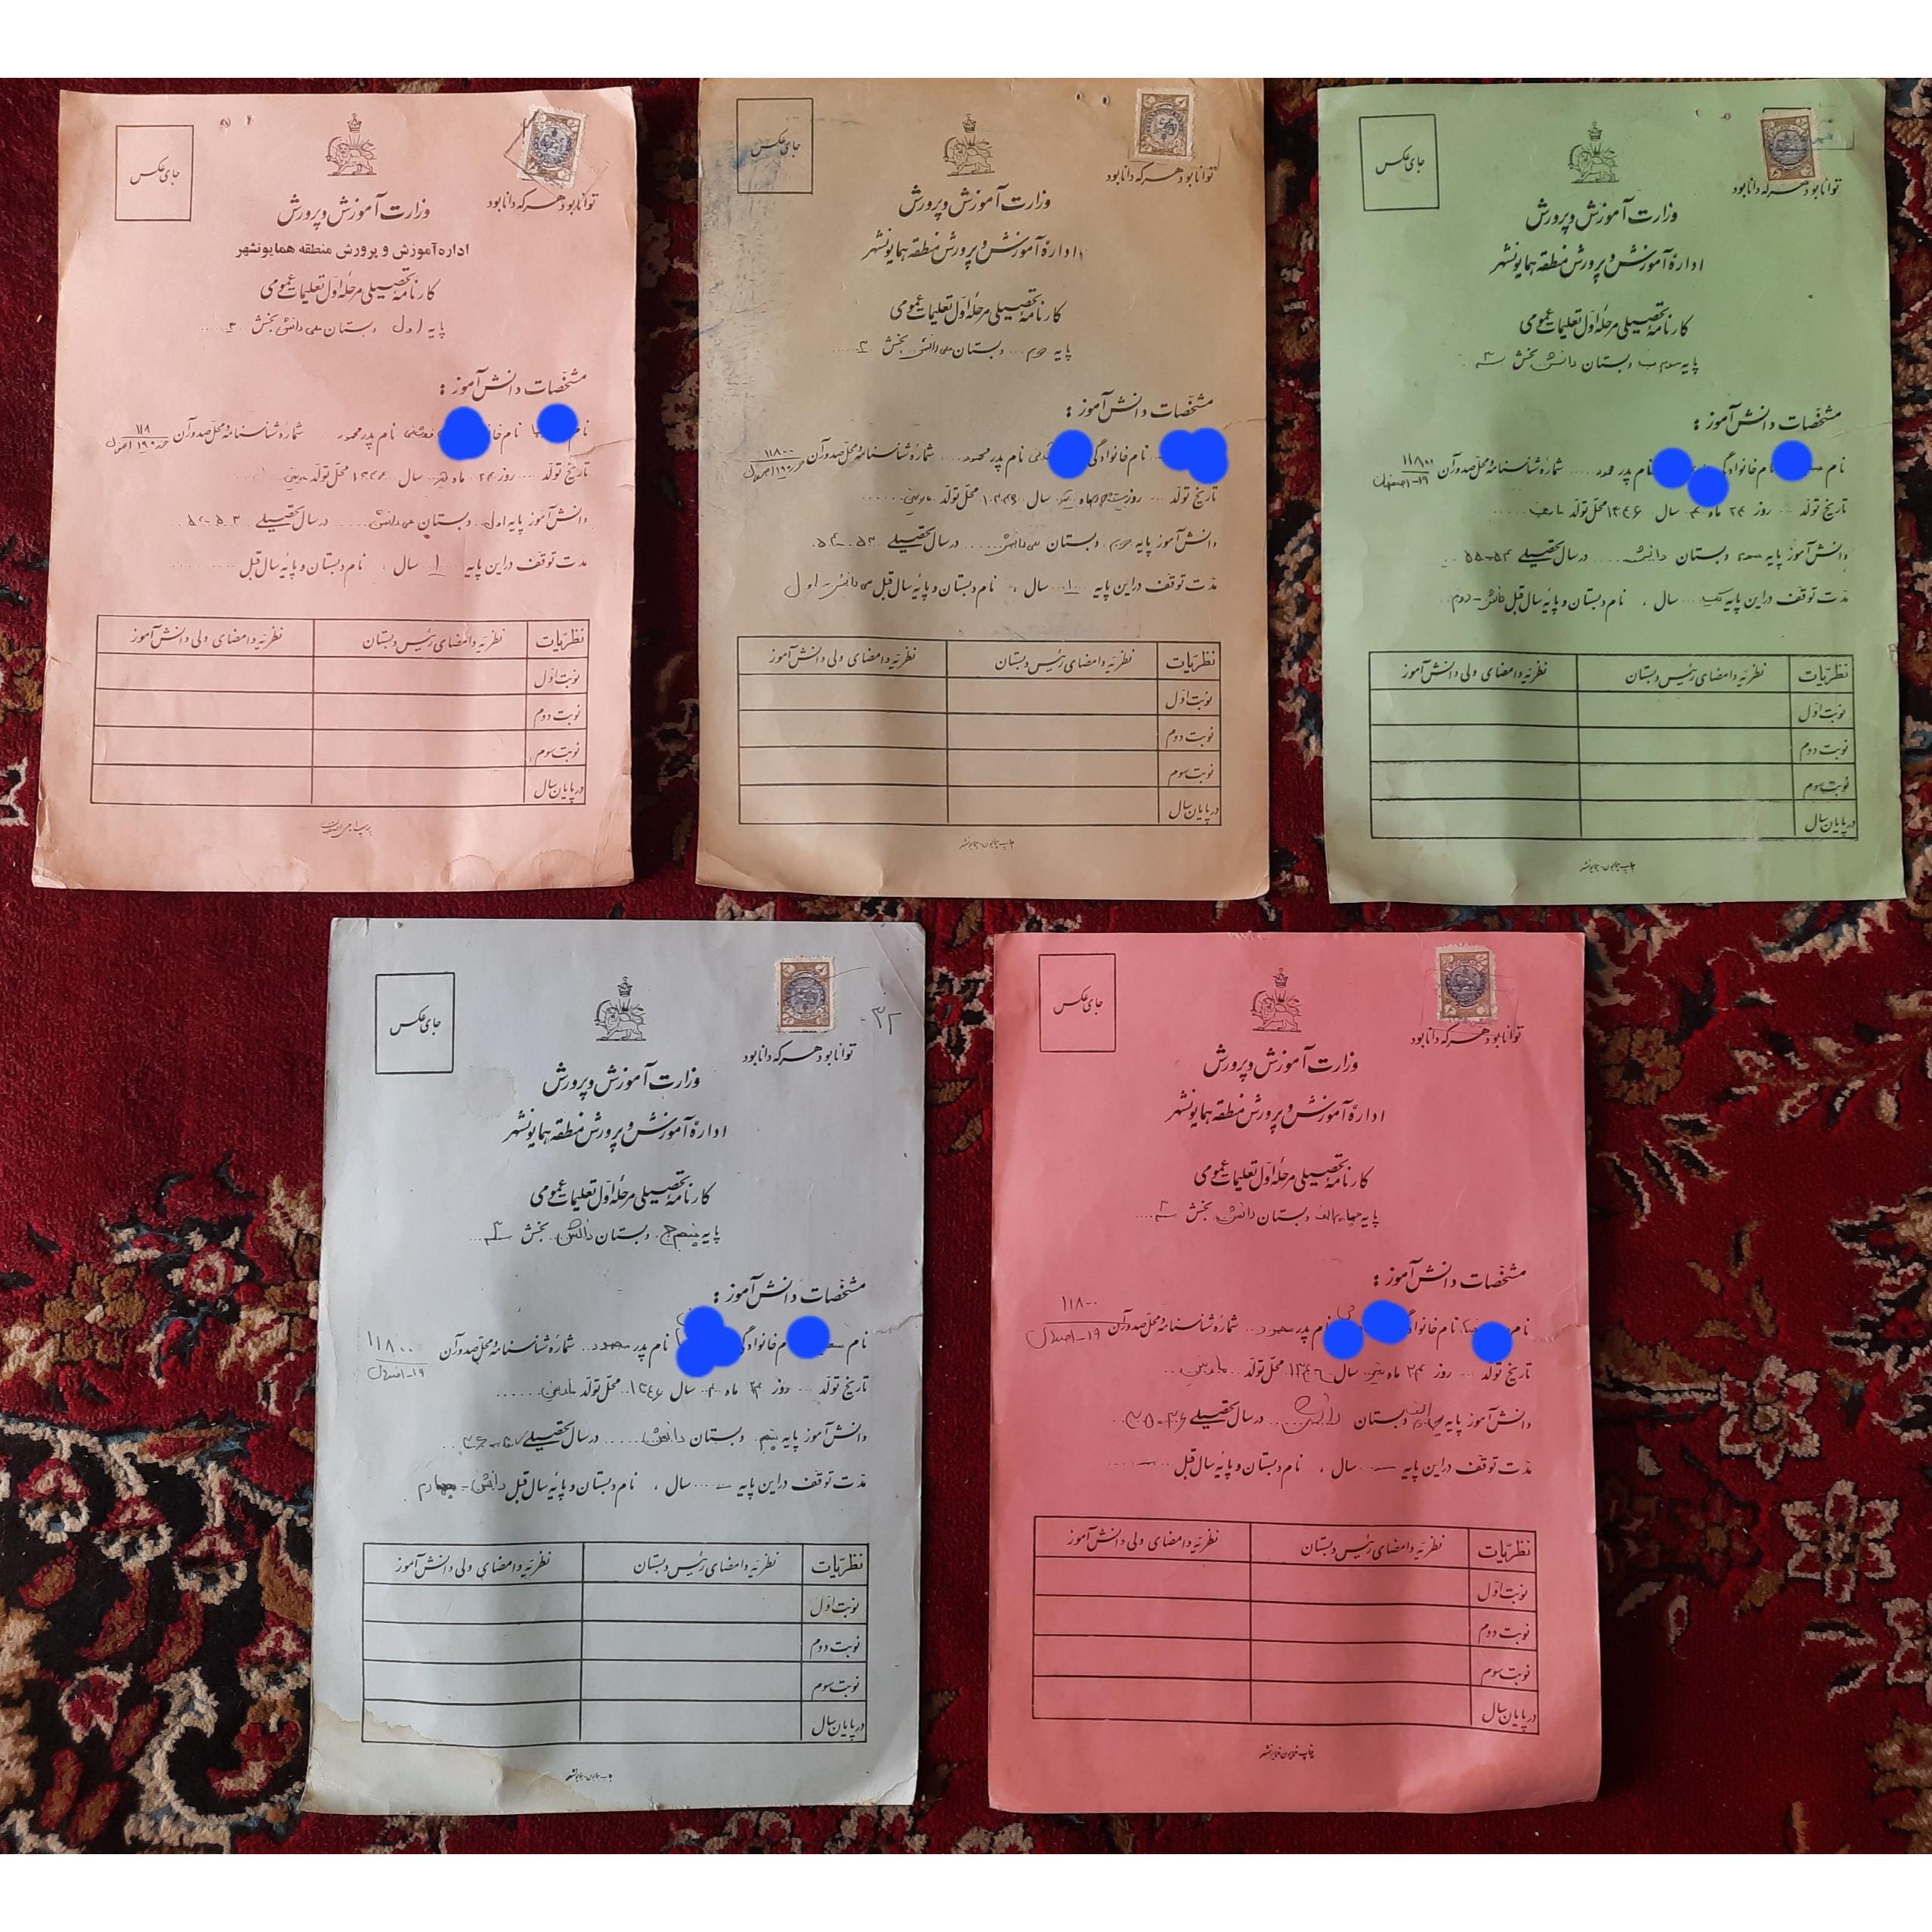 جای عکس
توانا بود هر که دانا بود
وزارت آموزش و پرورش
اداره آموزش و پرورش منطقه همایونشهر
کارنامهٔ تحصیلی مرحلهٔ اول تعلیمات عمومی
پایه اول دبستان ملی دانش بخش ۳
مشخصات دانش آموز :
نام نام پدر محمود شمارهٔ شناسنامه و محل صدور آن
تاریخ تولد روز ۲۴ ماه سال ۱۳۴۶ محل تولد
دانش آموز پایه اول دبستان ملی دانش در سال تحصیلی ۵۳-۵۲
مدت توقف در این پایه ۱ سال ، نام دبستان و پایهٔ سال قبل
نظریات نظریه و امضای رئیس دبستان نظریه و امضای ولی دانش آموز
نوبت اول
نوبت دوم
نوبت سوم
در پایان سال
جای عکس
توانا بود هر که دانا بود
وزارت آموزش و پرورش
ادارهٔ آموزش و پرورش منطقه همایونشهر
کارنامهٔ تحصیلی مرحلهٔ اول تعلیمات عمومی
پایه دوم دبستان ملی دانش بخش ۳
مشخصات دانش آموز :
نام خانوادگی نام پدر محمود شمارهٔ شناسنامه و محل صدور آن ۱۱۸۰۰
تاریخ تولد روز ماه سال ۱۳۴۶ محل تولد
دانش آموز پایه دوم دبستان ملی دانش در سال تحصیلی ۵۴-۵۳
مدت توقف در این پایه ۱ سال ، نام دبستان و پایهٔ سال قبل ملی دانش - اول
نظریات نظریه و امضای رئیس دبستان نظریه و امضای ولی دانش آموز
نوبت اول
نوبت دوم
نوبت سوم
در پایان سال
چاپ همایون - همایونشهر
جای عکس
توانا بود هر که دانا بود
وزارت آموزش و پرورش
ادارهٔ آموزش و پرورش منطقه همایونشهر
کارنامهٔ تحصیلی مرحلهٔ اول تعلیمات عمومی
پایه سوم ب دبستان دانش بخش ۳
مشخصات دانش آموز :
نام نام خانوادگی نام پدر محمود شمارهٔ شناسنامه و محل صدور آن ۱۱۸۰۰ ۱۹-اصفهان
تاریخ تولد روز ۲۴ ماه ۴ سال ۱۳۴۶ محل تولد
دانش آموز پایه سوم دبستان دانش در سال تحصیلی ۵۵-۵۴
مدت توقف در این پایه یک سال ، نام دبستان و پایهٔ سال قبل دانش - دوم
نظریات نظریه و امضای رئیس دبستان نظریه و امضای ولی دانش آموز
نوبت اول
نوبت دوم
نوبت سوم
در پایان سال
چاپ همایون - همایونشهر
جای عکس
توانا بود هر که دانا بود
وزارت آموزش و پرورش
ادارهٔ آموزش و پرورش منطقه همایونشهر
کارنامهٔ تحصیلی مرحلهٔ اول تعلیمات عمومی
پایه پنجم ج دبستان دانش بخش ۳
مشخصات دانش آموز :
نام نام خانوادگی نام پدر محمود شمارهٔ شناسنامه و محل صدور آن ۱۱۸۰۰ ۱۹-اصفهان
تاریخ تولد روز ماه ۴ سال ۱۳۴۶ محل تولد
دانش آموز پایه پنجم دبستان دانش در سال تحصیلی
مدت توقف در این پایه سال ، نام دبستان و پایهٔ سال قبل دانش - چهارم
نظریات نظریه و امضای رئیس دبستان نظریه و امضای ولی دانش آموز
نوبت اول
نوبت دوم
نوبت سوم
در پایان سال
چاپ همایون - همایونشهر
جای عکس
توانا بود هر که دانا بود
وزارت آموزش و پرورش
ادارهٔ آموزش و پرورش منطقه همایونشهر
کارنامهٔ تحصیلی مرحلهٔ اول تعلیمات عمومی
پایه چهارم الف دبستان دانش بخش ۳
مشخصات دانش آموز :
نام نام خانوادگی نام پدر محمود شمارهٔ شناسنامه و محل صدور آن ۱۱۸۰۰ ۱۹-اصفهان
تاریخ تولد روز ۲۴ ماه سال ۱۳۴۶ محل تولد
دانش آموز پایه دبستان دانش در سال تحصیلی
مدت توقف در این پایه سال ، نام دبستان و پایهٔ سال قبل
نظریات نظریه و امضای رئیس دبستان نظریه و امضای ولی دانش آموز
نوبت اول
نوبت دوم
نوبت سوم
در پایان سال
چاپ همایون همایونشهر